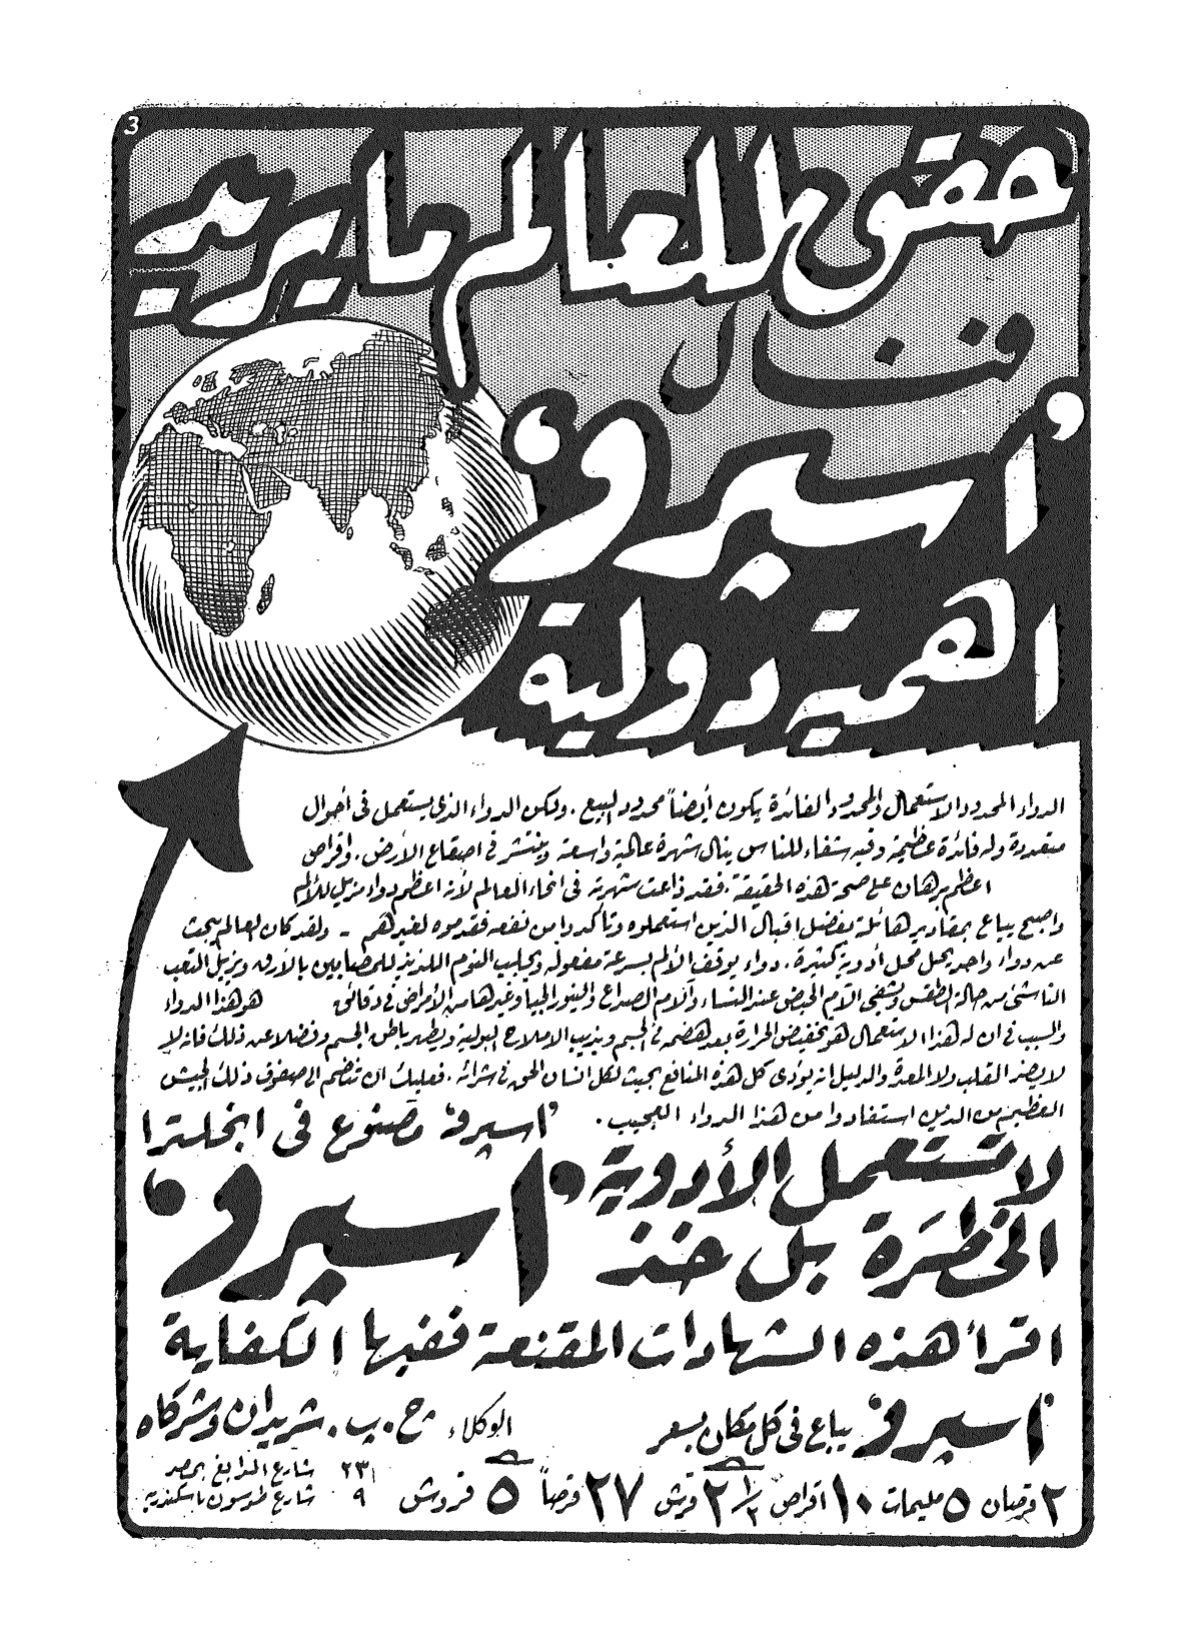 3
حقق للعالم ما يريد
فنال
'اسبرو'
اهمية دولية
الدواء المحدود الاستعمال والمحدود الفائدة يكون أيضاً محدود البيع . ولكن الدواء الذى يستعمل فى أحوال
متعددة وله فائدة عظيمة وفيه شفاء للناس ينال شهرة عالمية واسعة وينتشر فى اصقاع الأرض . واقراص
اعظم برهان على صحة هذه الحقيقة . فقد ذاعت شهرته فى انحاء العالم لأنه اعظم دواء مزيل للألم
واصبح يباع بمقادير هائلة بفضل اقبال الذين استعملوه وتأكدوا من نفعه فقدموه لغيرهم - ولقد كان العالم يبحث
عن دواء واحد يحل محل أدوية كثيرة . دواء يوقف الألم بسرعة مفعوله ويجلب النوم اللذيذ للمصابين بالأرق ويزيل التعب
الناشئ من حالة الطقس ويشفى آلام الحيض عند النساء وآلام الصداع والنيورالجيا وغيرها من الأمراض فى دقائق هو هذا الدواء
والسبب فى ان له هذا الاستعمال هو تخفيض الحرارة بعد هضمه فى الجسم ويذيب الاملاح البولية ويطهر باطن الجسم وفضلا عن ذلك فانه لا
لا يضر القلب ولا المعدة والدليل انه يؤدى كل هذه المنافع بحيث لكل انسان الحق فى شرائه . فعليك ان تنضم الى صفوف ذلك الجيش
العظيم من الذين استفادوا من هذا الدواء العجيب .
'اسبرو' مصنوع فى انجلترا
لا تستعمل الأدوية
الخطرة بل خذ
'اسبرو'
اقرأ هذه الشهادات المقنعة ففيها الكفاية
'اسبرو' يباع فى كل مكان بسعر
الوكلاء ح . ب . شريدان وشركاه
٢ قرصان ٥ مليمات ١٠ اقراص ٢ ١/٢ قرش ٢٧ قرصاً ٥ قروش
٢٣١ شارع المدابغ بمصر
٩ شارع طوسون باسكندرية